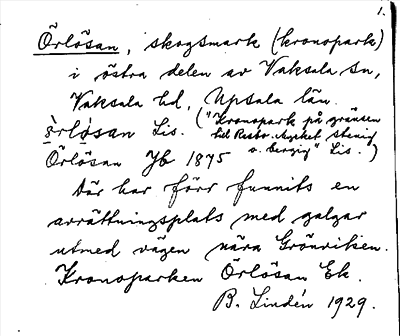 1.
Örlösan, skogsmark (kronopark)
i östra delen av Vaksala sn,
Vaksala hd, Upsala län.
ö̀rlǫ̀san Lis. ("Kronopark på gränsen
till Rasbo. Mycket stenig
Örlösan Jb 1875 o. bergig" Lis.)
Där har förr funnits en
avrättningsplats med galgar
utmed vägen nära Grönviken.
Kronoparken Örlösan Ek.
B. Lindén 1929.